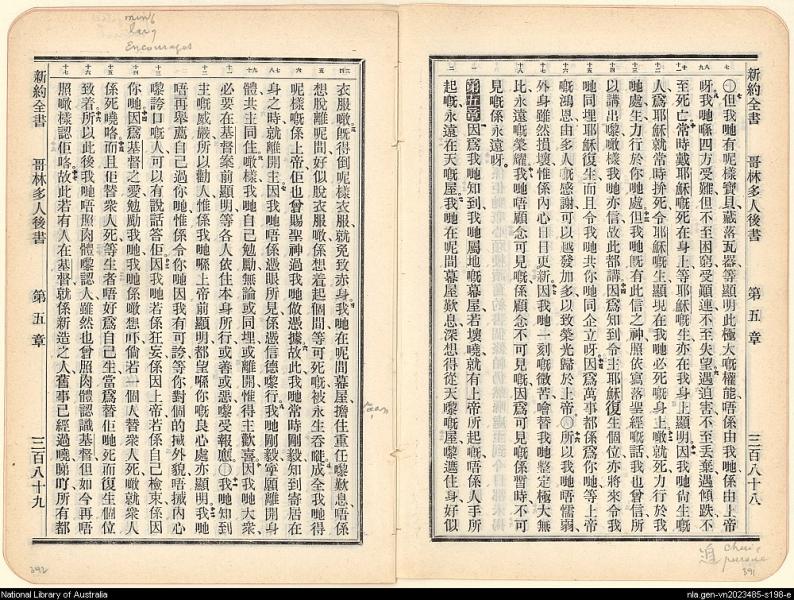 新約全書 哥林多人後書 第五章 三百八十八
○但我哋有呢樣寶貝藏落瓦器等顯明此極大嘅權能唔係由我哋係由上帝
呀我哋喺四方受難但不至困窮受顚連不至失望遇迫害不至丢棄遇傾跌不
至死亡常時戴耶穌嘅死在身上等耶穌嘅生亦在我身上顯明因我哋尙生嘅
人爲耶穌就常時拚死令耶穌嘅生顯現在我哋必死嘅身上噉就死力行於我
哋處生力行於你哋處但我哋旣有此信之神照依寫落聖經嘅話我也曾信所
以講出嚟噉樣我哋亦信故此都講因爲知到令主耶穌復生個位亦將來令我
哋同埋耶穌復生而且令我哋共你哋同企立呀因爲萬事都係爲你哋等上帝
嘅鴻恩由多人嘅感謝可以越發加多以致榮光歸於上帝○所以我哋唔懦弱
外身雖然損壞惟係內心日日更新因我哋一刻嘅微苦噲替我哋整定極大無
比永遠嘅榮耀我哋唔顧念可見嘅係顧念不可見嘅因爲可見嘅係暫時不可
見嘅係永遠呀
第五章因爲我哋知到我哋屬地嘅幕屋若壞嘵就有上帝所起嘅唔係人手所
起嘅永遠在天嘅屋我哋在呢間幕屋歎息深想得從天嚟嘅屋嚟遮住身好似
追
391
新約全書 哥林多人後書 第五章 三百八十九
衣服噉旣得倒呢樣衣服就免致赤身我哋在呢間幕屋擔住重任嚟歎息唔係
想脫離呢間好似脫衣服噉係想着起個間等可死嘅被永生吞嘥成全我哋得
呢樣嘅係上帝佢也曾賜聖神過我哋做憑據故此我哋常時剛毅知到寄居在
身之時就離開主因我哋唔係憑眼所見係憑信德嚟行我哋剛毅寧願離開身
體共主同住噉樣我哋自己勉勵無論或同埋或離開惟得主歡喜因我哋大衆
必要在基督案前顯明等各人依住本身所行或善或惡嚟受報應○我哋知到
主嘅威嚴所以勸人惟係我哋喺上帝前顯明都望喺你嘅良心處亦顯明我哋
唔再舉薦自己過你哋惟係令你哋因我有可誇等你對個的掝外貌唔掝內心
嚟誇口嘅人可以有說話答佢因我哋若係狂妄係因上帝若係自己檢束係因
你哋因爲基督之愛勉勵我哋我哋係噉想吓倘若一個人替衆人死噉就衆人
係死嘵咯而且佢替衆人死等生者唔好爲自己生當爲替佢哋死而復生個位
致着所以此後我哋唔照肉體嚟認人雖然也曾照肉體認識基督但如今再唔
照噉樣認佢咯故此若有人在基督就係新造之人舊事已經過嘵睇吓所有都
392
National Library of Australia
nla.gen-vn2023485-s198-e